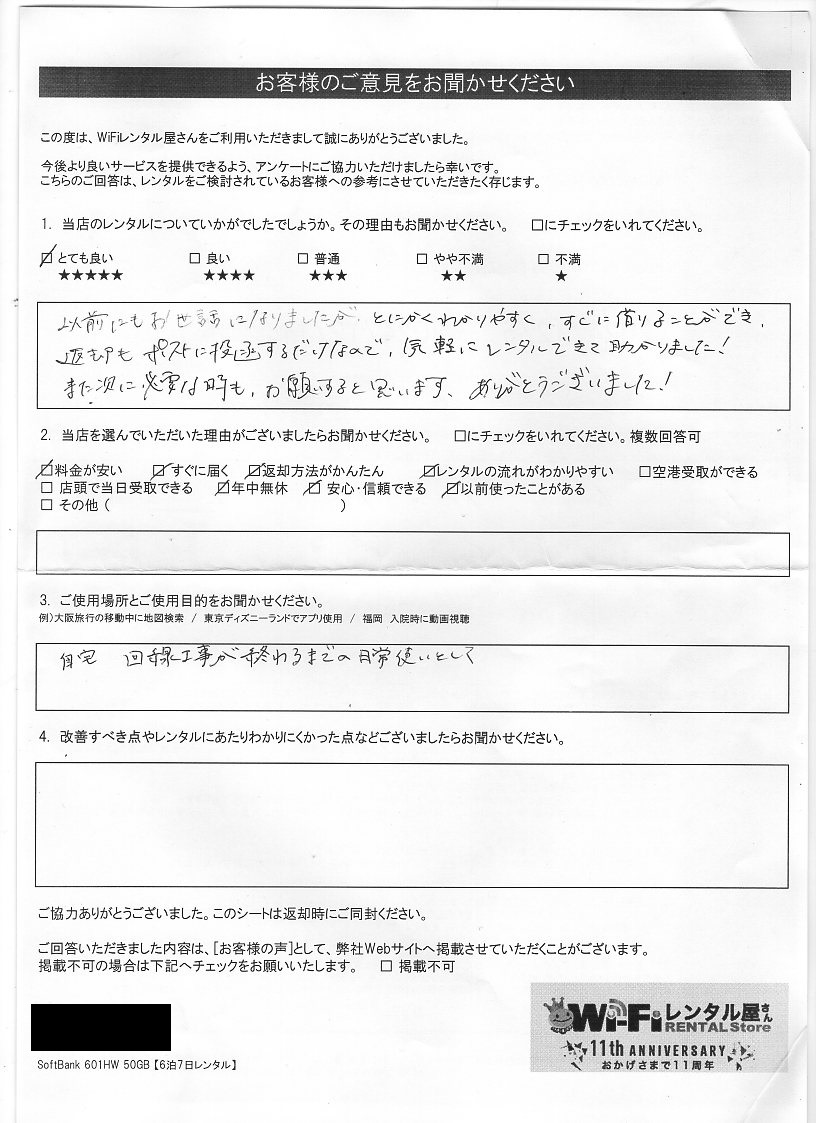 お客様のご意見をお聞かせください
この度は、WiFiレンタル屋さんをご利用いただきまして誠にありがとうございました。
今後より良いサービスを提供できるよう、アンケートにご協力いただけましたら幸いです。
こちらのご回答は、レンタルをご検討されているお客様への参考にさせていただきたく存じます。
1. 当店のレンタルについていかがでしたでしょうか。その理由もお聞かせください。 □にチェックをいれてください。
☑ とても良い □ 良い □ 普通 □ やや不満 □ 不満
★★★★★ ★★★★ ★★★ ★★ ★
以前にもお世話になりましたが、とにかくわかりやすく、すぐに借りることができ、
返却もポストに投函するだけなので、気軽にレンタルできて助かりました!
また次に必要な時も、お願いすると思います、ありがとうございました!
2. 当店を選んでいただいた理由がございましたらお聞かせください。 □にチェックをいれてください。複数回答可
☑料金が安い ☑すぐに届く ☑返却方法がかんたん ☑レンタルの流れがわかりやすい □空港受取ができる
□ 店頭で当日受取できる ☑年中無休 ☑ 安心・信頼できる ☑以前使ったことがある
□ その他 ( )
3. ご使用場所とご使用目的をお聞かせください。
例)大阪旅行の移動中に地図検索 / 東京ディズニーランドでアプリ使用 / 福岡 入院時に動画視聴
自宅 回線工事が終わるまでの日常使いとして
4. 改善すべき点やレンタルにあたりわかりにくかった点などございましたらお聞かせください。
ご協力ありがとうございました。このシートは返却時にご同封ください。
ご回答いただきました内容は、[お客様の声]として、弊社Webサイトへ掲載させていただくことがございます。
掲載不可の場合は下記へチェックをお願いいたします。 □ 掲載不可
Wi-Fiレンタル屋さん
RENTAL Store
11th ANNIVERSARY
おかげさまで11周年
SoftBank 601HW 50GB【6泊7日レンタル】